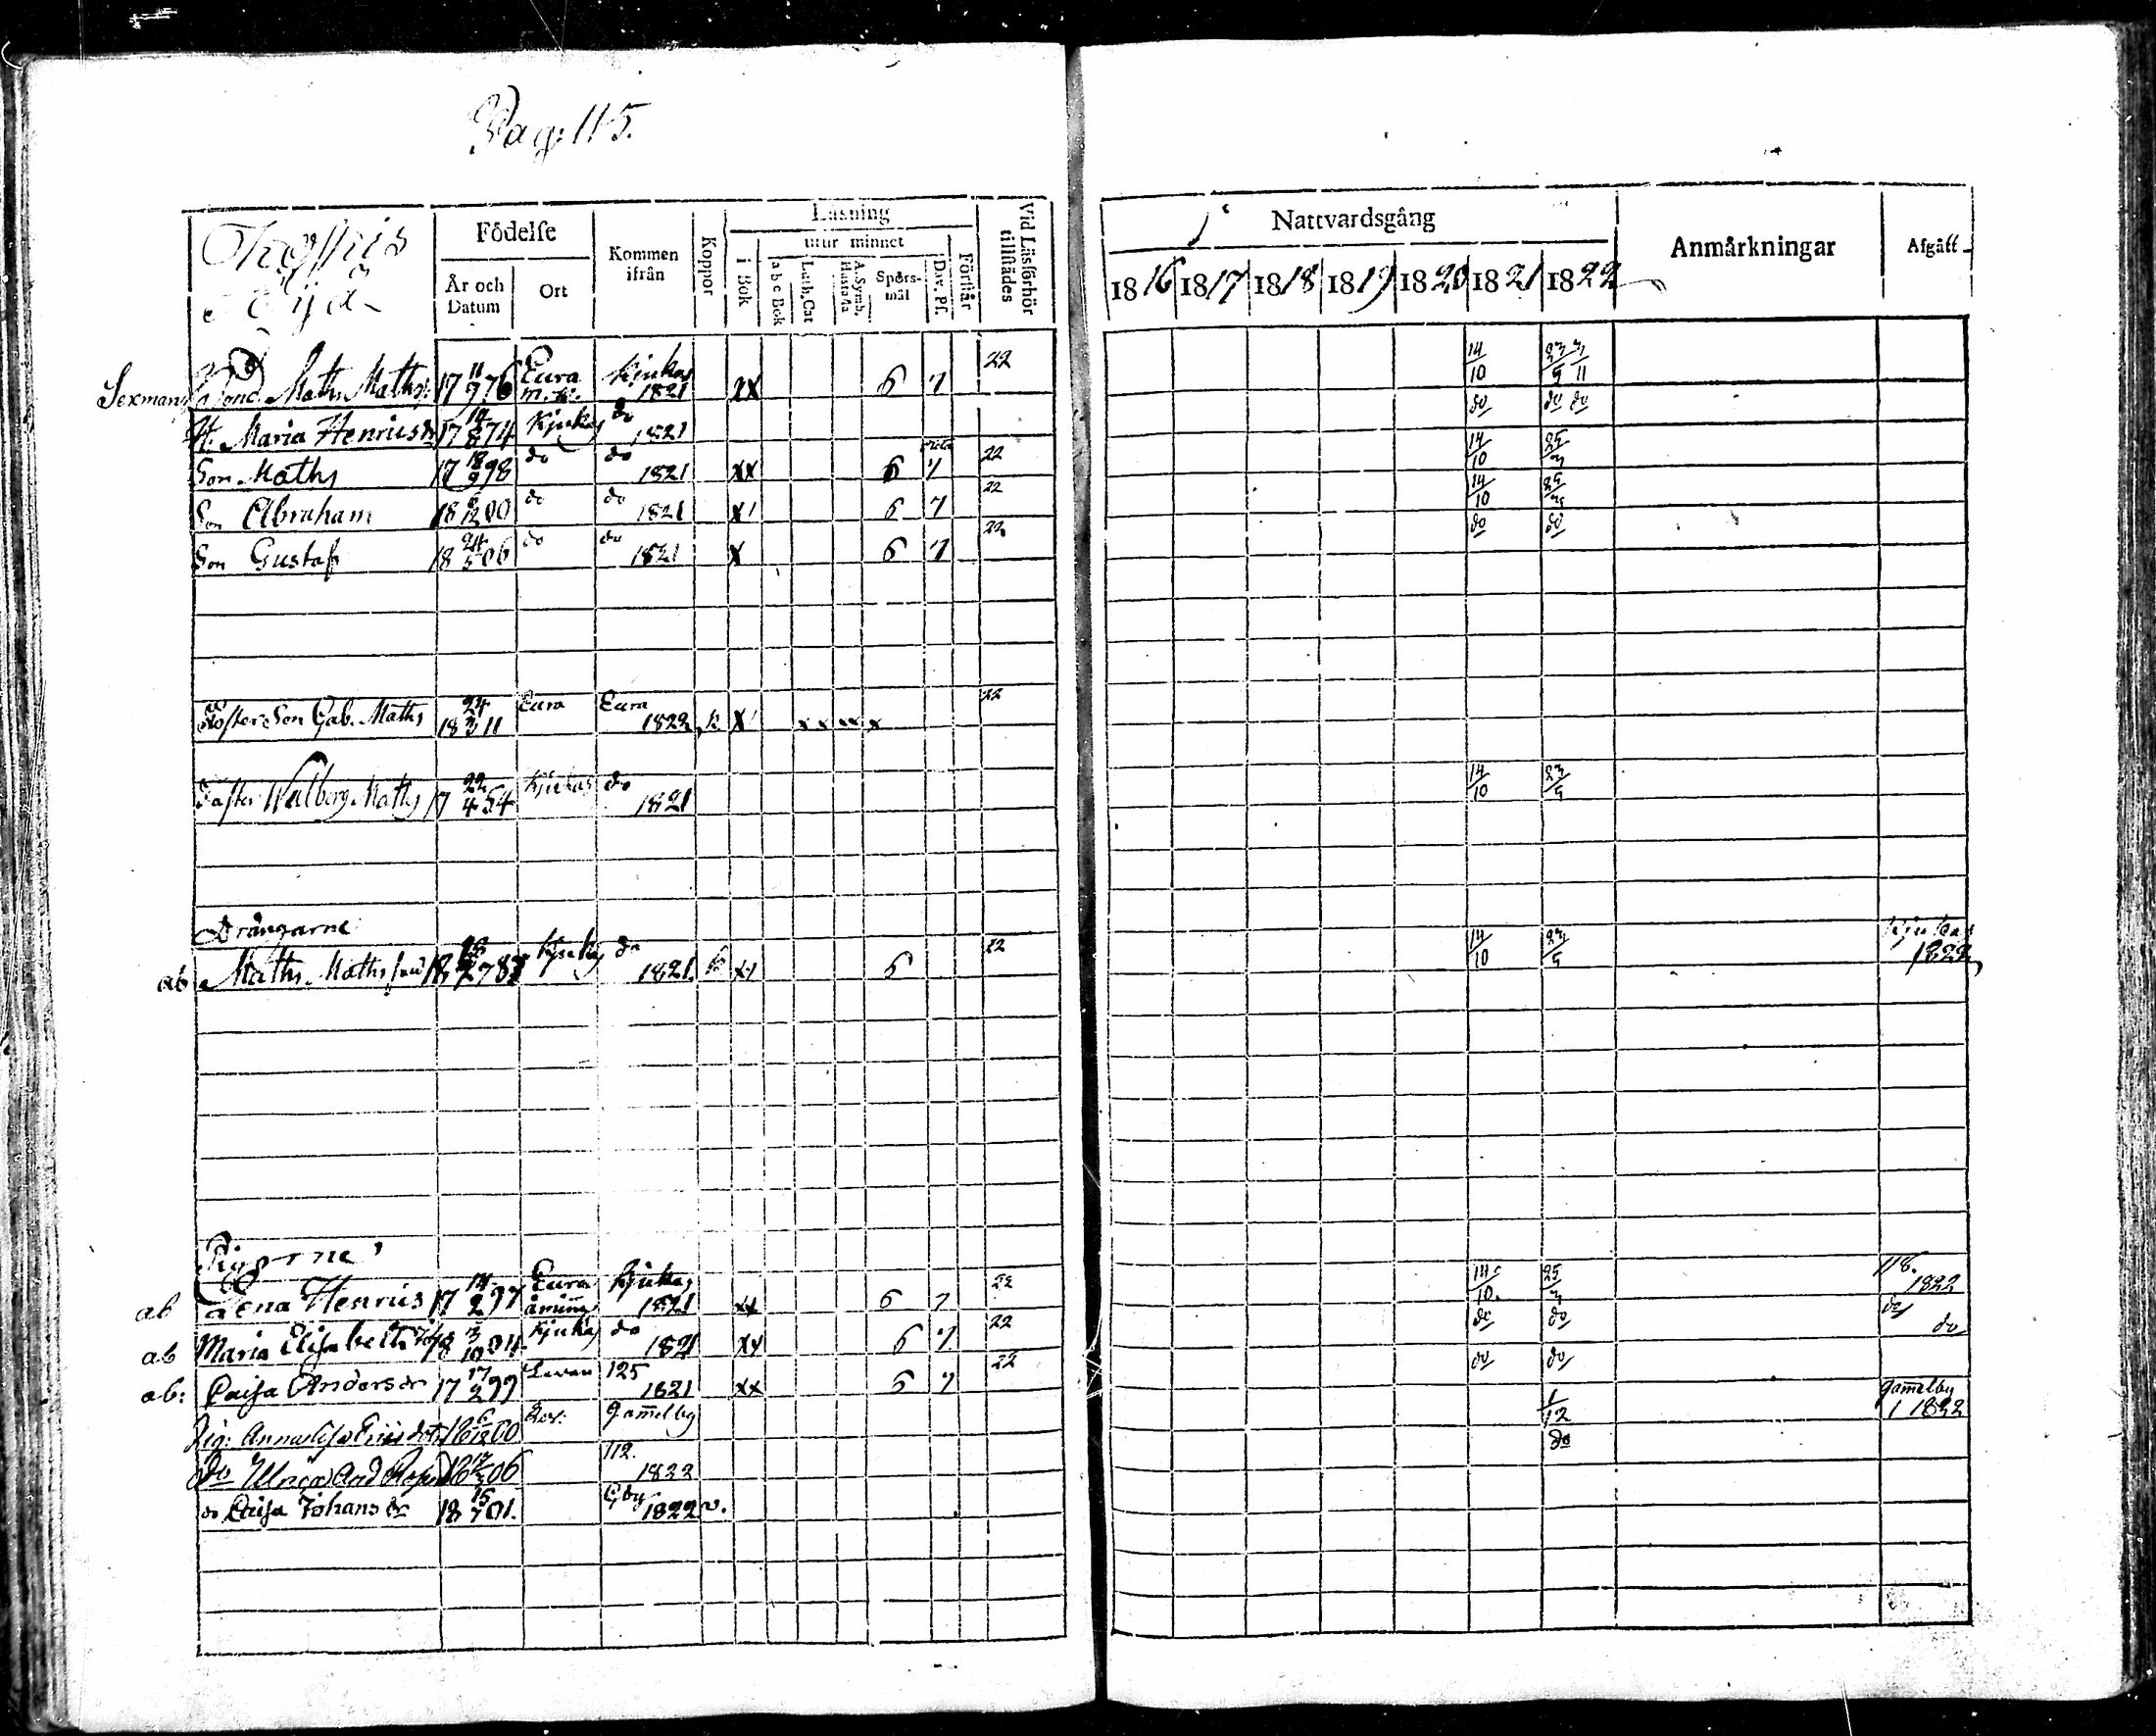 Pag: 115.
Födelse
År och Datum
Ort
Kommen ifrån
Koppor
Läsning
utur minnet
i Bok
a b c Bok
Luth. Cat
A. Symb. Hustafla
Spörsmål
Dav. Ps.
Förstår
Vid Läsförhör tillstädes
Nattvardsgång
1816 1817 1818 1819 1820 1821 1822
Anmärkningar
Afgått
Sexman Bond. Maths Maths: 17 11/9 76 Eura Kjukas 1821 xx 6 7 22 14/10
H. Maria Henriusdr 17 74 Kjukas do 1821 do do do
Son Maths 17 18/9 98 do do 1821 xx 6 7 22 14/10 25/3
Son Abraham 18 00 do do 1821 6 7 22 14/10 25/3
Son Gustaf 18 24/5 06 do do 1821 x 6 7 22 do do
Son Gab. Maths 18 24/3 11 Eura Eura 1822 x x x x x 22
Faster Walborg Maths 17 22/4 54 Kjukas do 1821 14/10
Drängarne
ab Maths Maths 28/2 Kjukas do 1821 6 22 14/10 Kjukas 1822
Pigorne
ab Lena Henrius 17 14/2 97 Eura Kjukas 1821 xx 6 7 22 14/10 25/3 118. 1822
ab Maria Elisabeth 18 01 Kjukas do 1821 xx 6 7 22 do do do do
ab: Caisa Andersdr 17 17/2 99 125 1821 xx 6 7 22 do do
Pig: Annalisa Ericsdotr 18 6/12 00 Gamelby 1/12 Gamelby 1822
Do Ulrica 18 06 112. 1822 do
do Caisa Johansdr 18 15/7 01. Gby 1822 v.